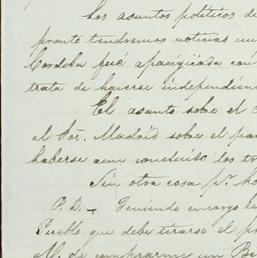 Los asuntos politicos de
pronto tendremos noticias
Cordoba fué apaciguada con
trata de hacerse independien
El asunto sobre el
al Sor. Madrid sobre el
haberse aun concluido los
Sin otra cosa pr. ho
P. D. — Teniendo encargo
Pueblo que debe tirarse el
de comprarme un